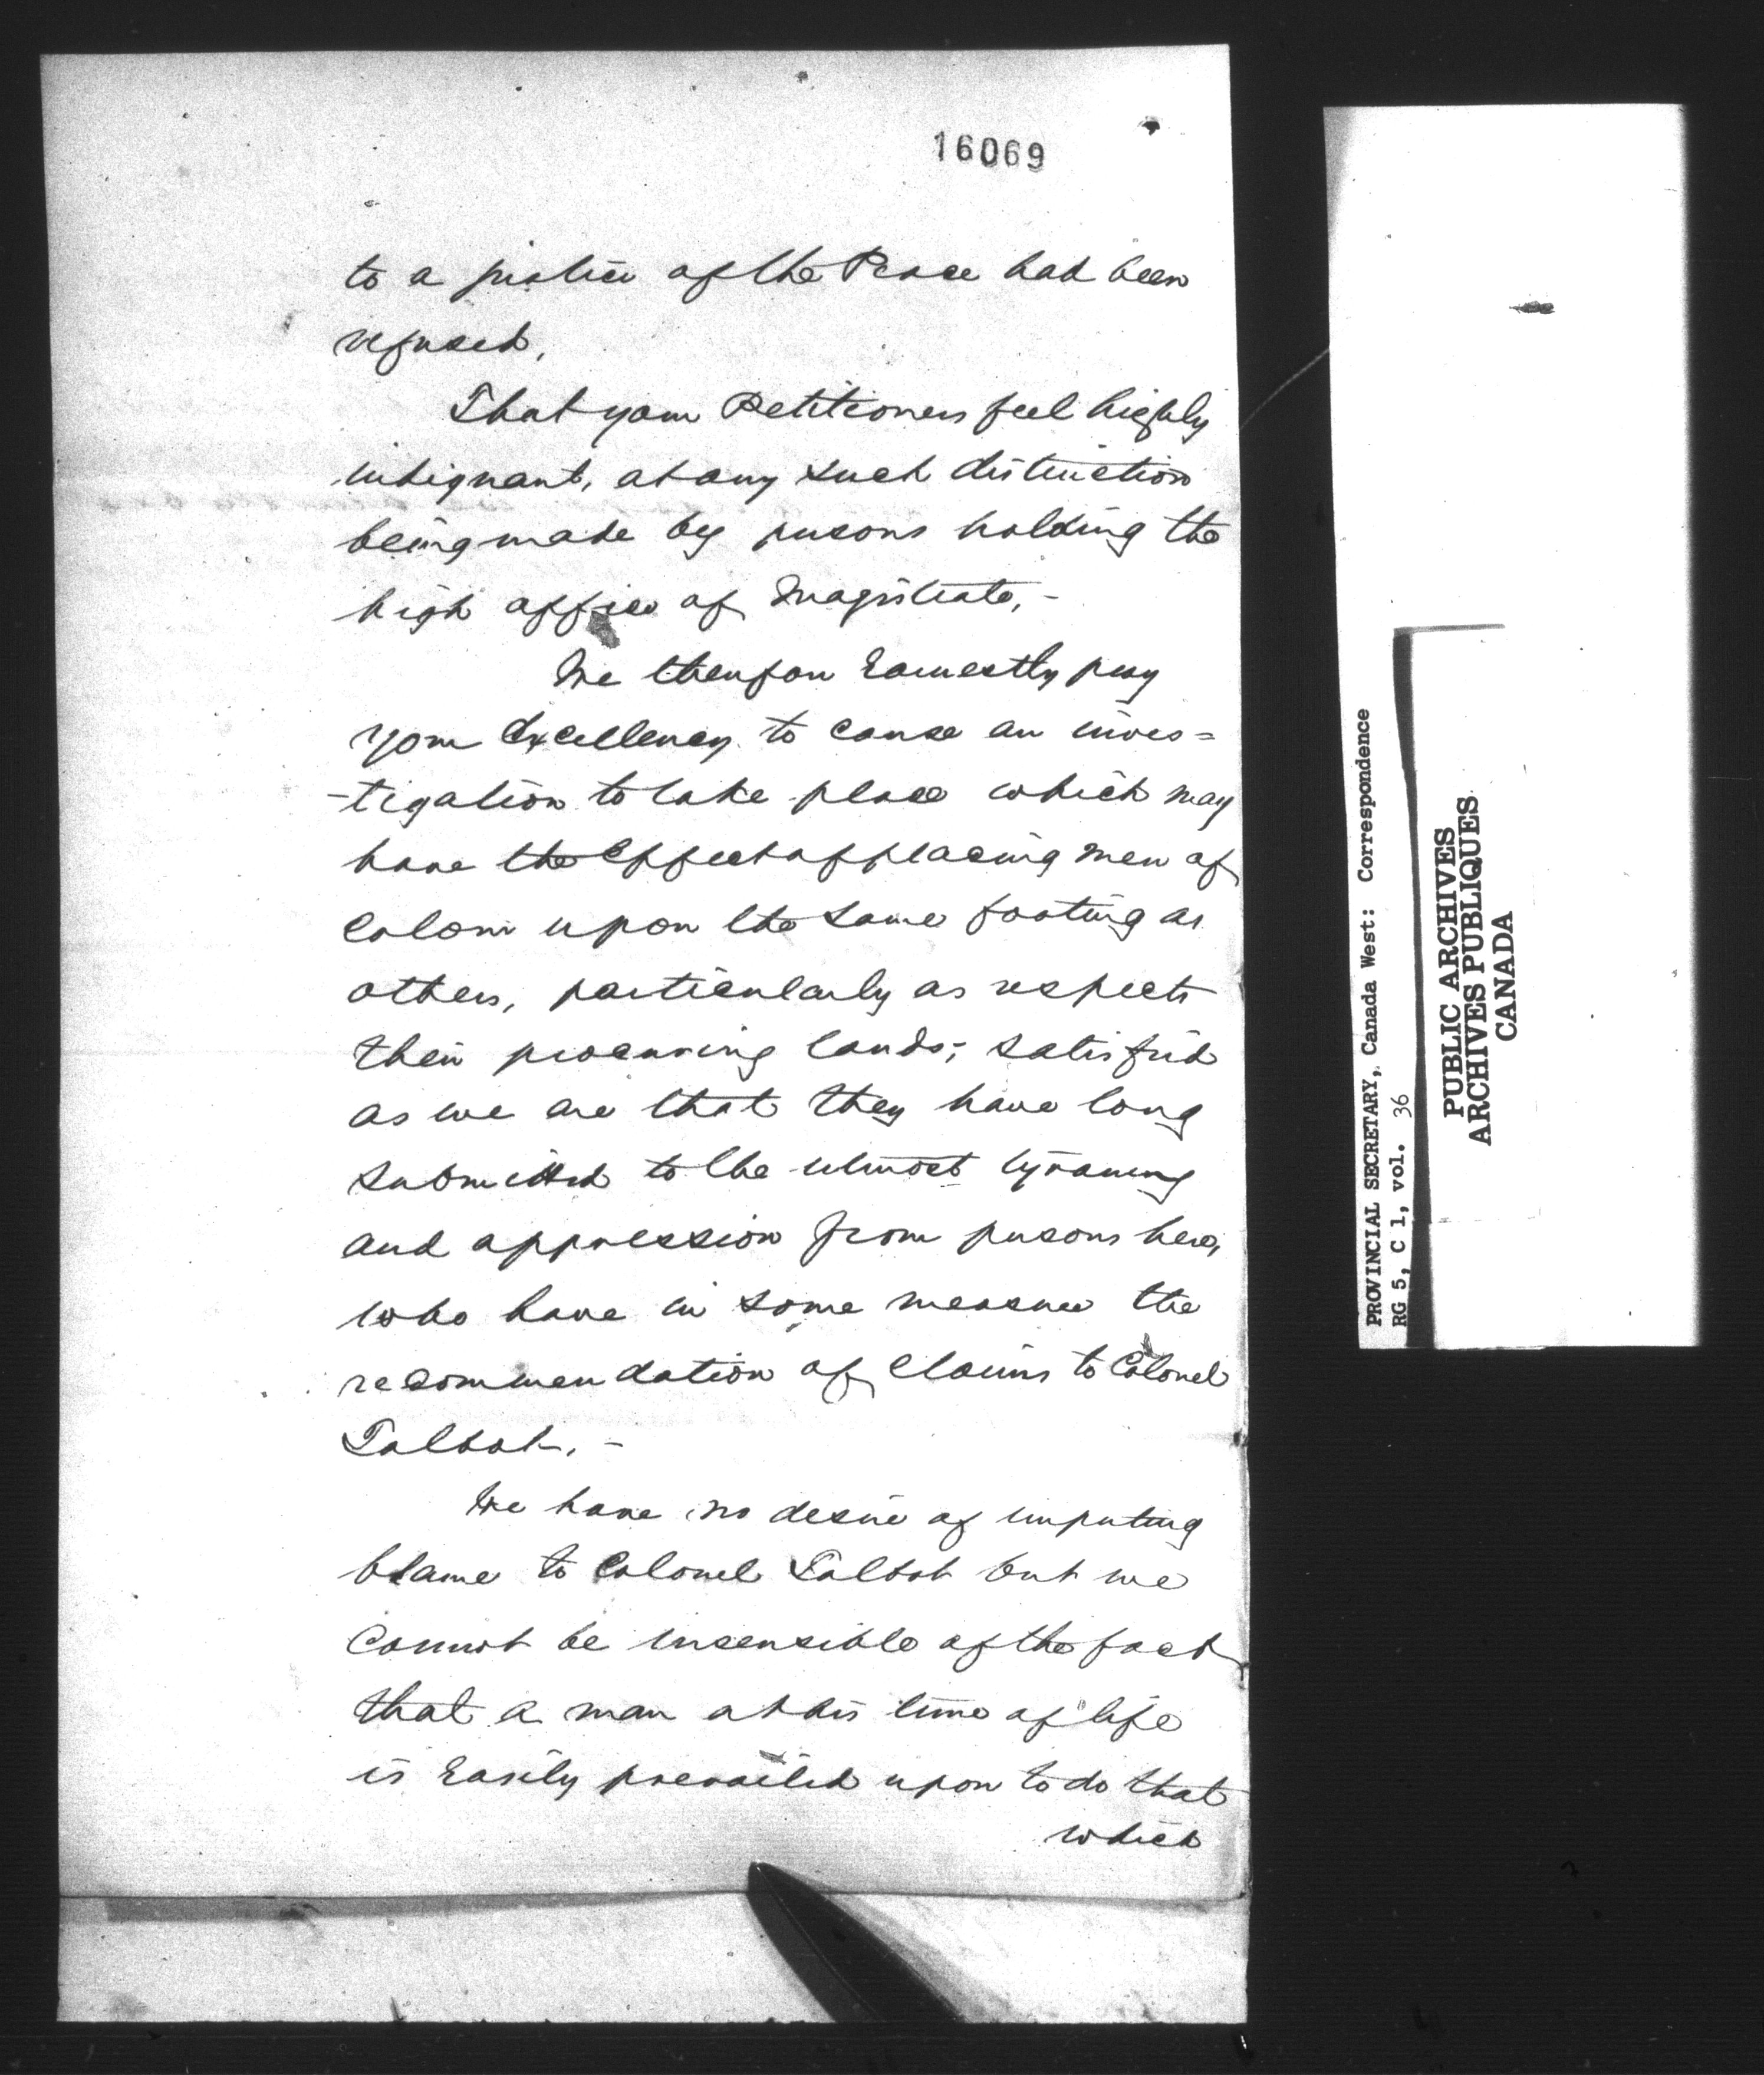 16069
to a justice of the Peace had been
refused.
That your Petitioners feel highly
indignant, at any such distinction
being made by persons holding the
high office of Magistrate, -
We therefore Earnestly pray
your Excellency to cause an inves=
-tigation to take place which may
have the effect of placing men of
Colour upon the same footing as
others, particularly as respects
their procuring lands; satisfied
as we are that they have long
submitted to the utmost tyranny
and oppression from persons here,
who have in some measure the
recommendation of Claims to Colonel
Talbot. -
We have no desire of imputing
blame to Colonel Talbot but we
cannot be insensible of the fact
that a man at his time of life
is Easily prevailed upon to do that
which
PROVINCIAL SECRETARY, Canada West: Correspondence
RG 5, C 1, vol. 36
PUBLIC ARCHIVES
ARCHIVES PUBLIQUES
CANADA